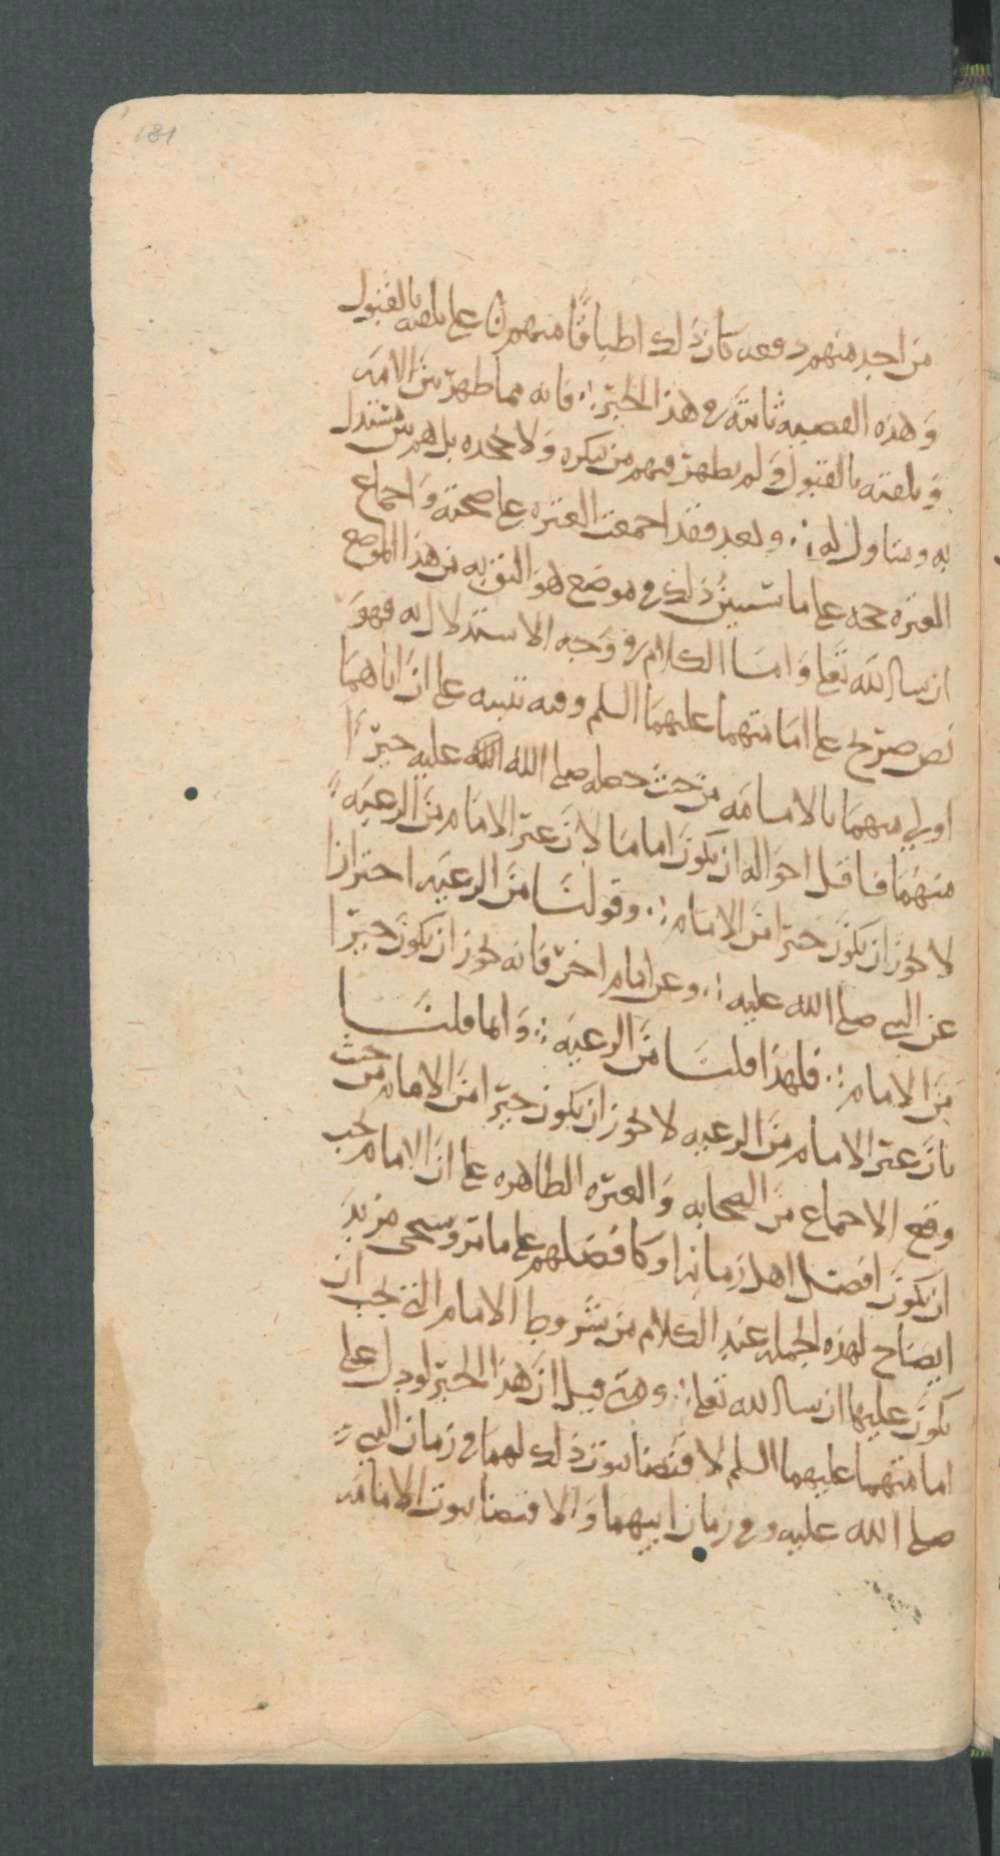 131
من احد منهم دفعه كان ذلك اطباقا منهم على تلقيه بالقبول
وهذه القضيه ثابتة في هذا الخبر ∴ فانه مما ظهر بين الامه
وتلقته بالقبول ولم يظهر فيهم من ينكره ولا يجحده بل هم بين مستدل
به ومتاول له ∴ وبعد فقد اجمعت العتره على صحته واجماع
العتره حجه على ما سنبين ذلك في موضع هو اليق به من هذا الموضع
ان شا الله تعلى واما الكلام في وجه الاستدلال به فهو
نص صريح على امامتهما عليهما السلم وفيه تنبيه على ان اباهما
اولى منهما بالامامه من حيث جعله صلى الله عليه خيرا
منهما فاقل احواله ان يكون اماما لان غير الامام من الرعيه
لا يجوز ان يكون خيرا من الامام ∴ وقولنا من الرعيه احترازا
عن النبي صلى الله عليه ∴ وعن امام اخر فانه يجوز ان يكون خيرا
من الامام ∴ فلهذا قلنا من الرعيه ∴ وانما قلنا
بان غير الامام من الرعيه لا يجوز ان يكون خيرا من الامام من حيث
وقع الاجماع من الصحابه والعتره الطاهره على ان الامام يجب
ان يكون افضل اهل زمانه او كافضلهم على ما مر وسيجي مزيد
ايضاح لهذه الجمله عند الكلام من شروط الامام التي يجب ان
يكون عليها ان شا الله تعلى ∴ ومتى قيل ان هذا الخبر لو دل على
امامتهما عليهما السلم لاقتضا ثبوت ذلك لهما في زمان النبي
صلى الله عليه وفي زمان ابيهما والا قتضا ثبوت الامامه